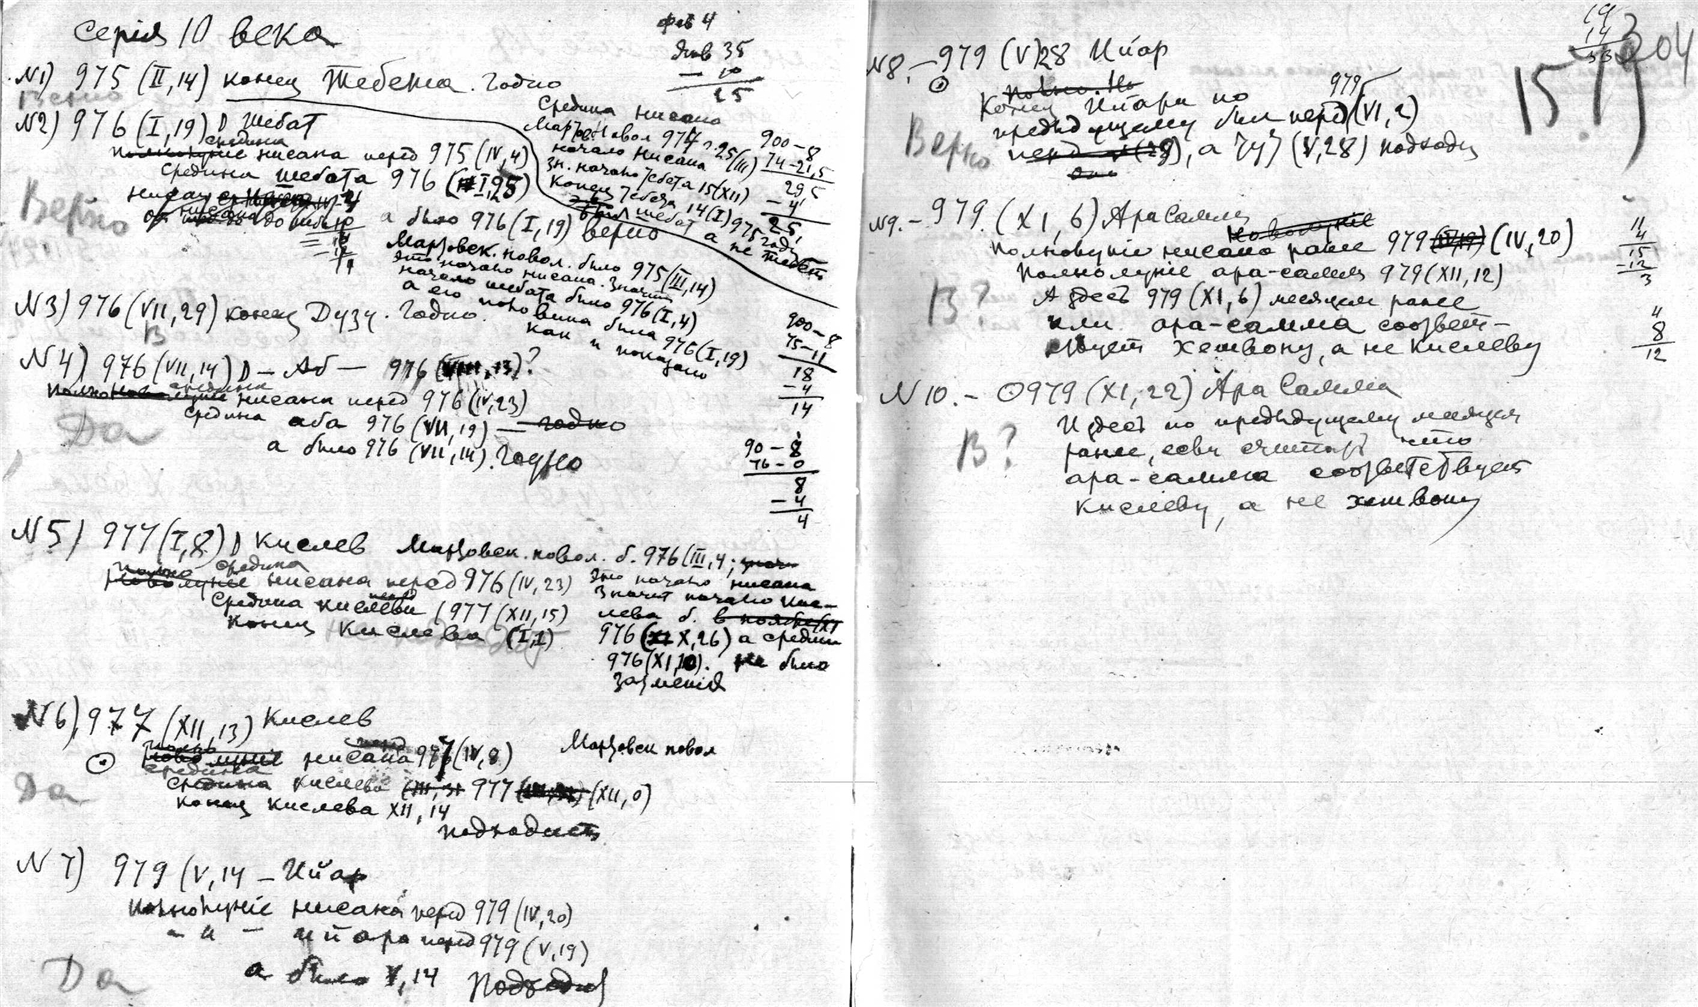 Серія 10 века
фев 4
Янв 35
— 10
25
N1) 975 (II,14) конец Тебета. Годно
N2) 976 (I,19) D Шебат
средина
нисана перед 975 (IV,4)
Средина шебата 976 (I,25)
Верно
а было 976 (I,19) верно
Средина нисана
Март. новол 977 г. 25 (III)
начало нисана
зн. начало Тебета 15 (XII)
Конец Тебета 14 (I) 975 года
был шебат а не Тебет
900–8
74–21,5
29,5
–4
25,
Мартовск. новол. было 975 (III,14)
это начало нисана. Значит
начало шебата было 976 (I,4)
а его половина была 976 (I,19)
как и показано
900–8
75–11
18
–4
14
N3) 976 (VII,29) конец Дузу. Годно.
В
N4) 976 (VII,14) D — Аб — 976 (VIII,13)?
средина
нисана перед 976 (IV,23)
Средина аба 976 (VII,19) — годно
а было 976 (VII,14). Годно
Да
90–8
76–0
8
–4
4
N5) 977 (I,8) D Кислев
Мартовск. новол. б. 976 (III,4;
средина
нисана перед 976 (IV,23)
Средина кислева (977 (XII,15)
конец Кислева (I,1)
Это начало нисана
Значит начало кис-
лева б.
976 (X,26) а средина
976 (XI,10). не было
затмения
N6) 977 (XII,13) Кислев
нисана 977 (IV,8)
Мартовск новол
средина
Средина кислева 977 (XII,0)
конец кислева XII,14
подходит
Да
N7) 979 (V,14 — Ийар
Полнолуніе нисана перед 979 (IV,20)
– " – ийара перед 979 (V,19)
а было V,14 Подходит
Да
19
14
33
1519
304
N8.– 979 (V)28 Ийар
Конец Ийара по
979
предыдущему был перед (VI,2)
, а тут (V,28) подходит
Верно
N9.– 979. (XI,6) АраСамна
Полнолуніе нисана ранее 979 (IV,20)
Полнолуніе ара-самна 979 (XII,12)
А здесь 979 (XI,6) месяцем ранее
или ара-самма соответ-
ствует Хешвону, а не Кислеву
В?
11
4
15
12
3
4
8
12
N10.– ⊙979 (XI,22) Ара Самма
И здесь по предыдущему месяцем
ранее, если считать что
ара-самма соответствует
Кислеву, а не хешвону
В?